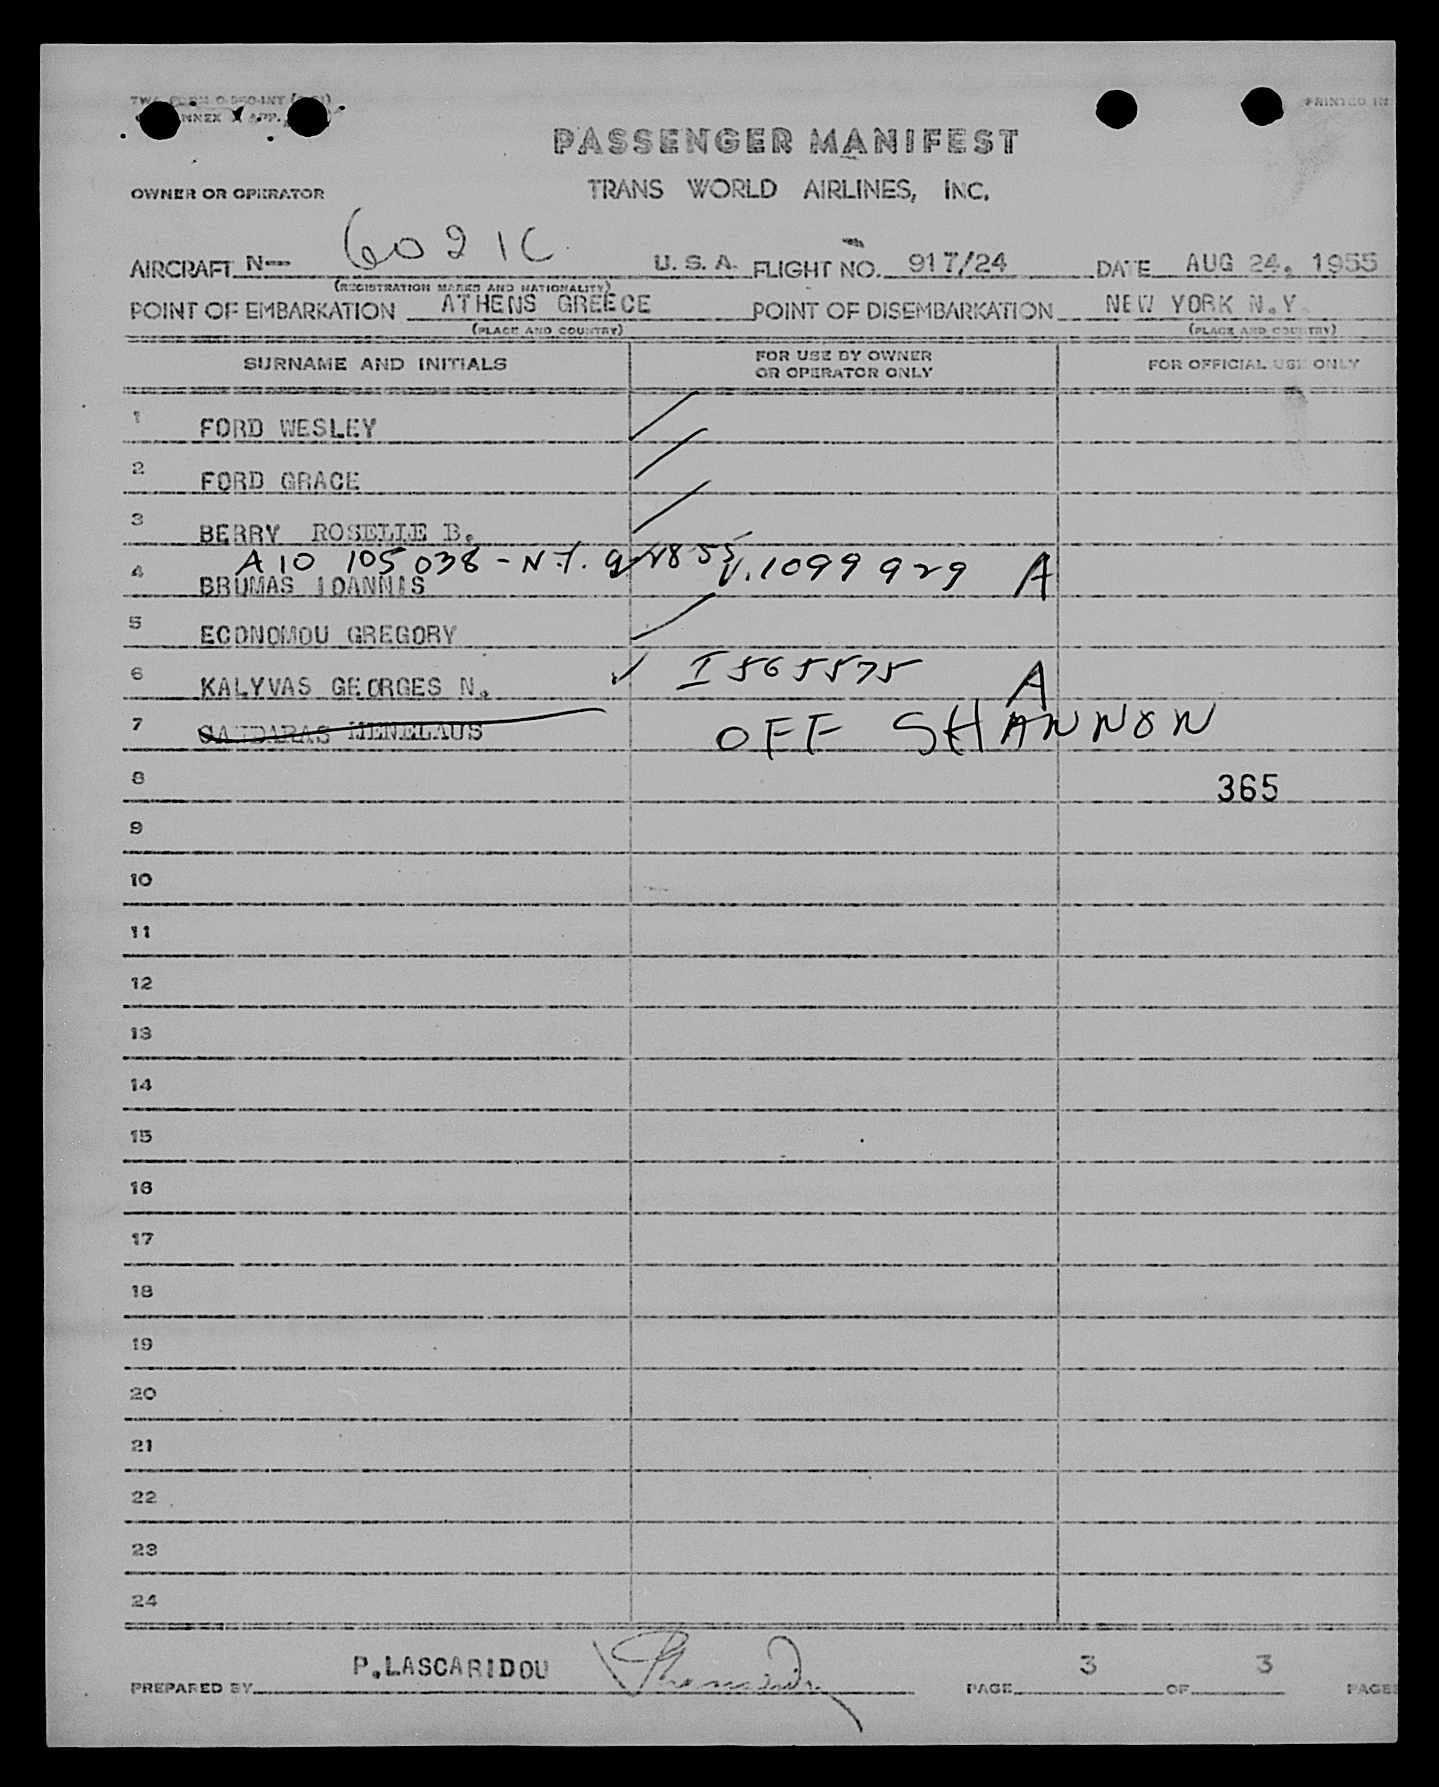 PRINTED IN
PASSENGER MANIFEST
OWNER OR OPERATOR
TRANS WORLD AIRLINES, INC.
AIRCRAFT N— 6021C U. S. A. FLIGHT NO. 917/24 DATE AUG 24, 1955
(REGISTRATION MARKS AND NATIONALITY)
POINT OF EMBARKATION ATHENS GREECE POINT OF DISEMBARKATION NEW YORK N.Y.
(PLACE AND COUNTRY) (PLACE AND COUNTRY)
SURNAME AND INITIALS FOR USE BY OWNER OR OPERATOR ONLY FOR OFFICIAL USE ONLY
1 FORD WESLEY
2 FORD GRACE
3 BERRY ROSELLE B.
A10 105 038 - N.Y. V.1099 929 A
4 BRUMAS IOANNIS
5 ECONOMOU GREGORY
6 KALYVAS GEORGES N. ✓ I 565575 A
7 MENELAUS OFF SHANNON
8 365
9
10
11
12
13
14
15
16
17
18
19
20
21
22
23
24
PREPARED BY P.LASCARIDOU PAGE 3 OF 3 PAGES